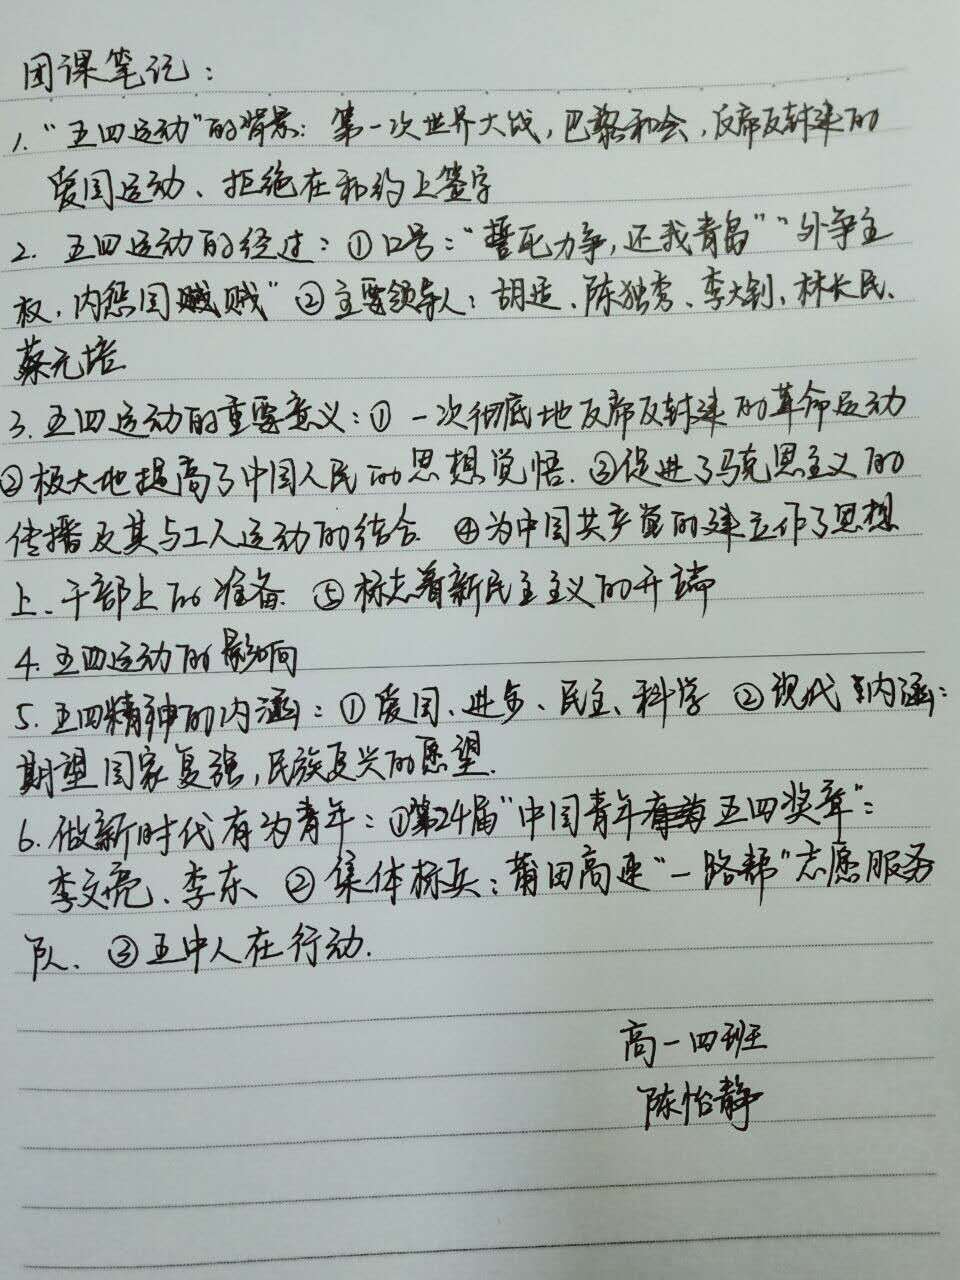 团课笔记：
1. “五四运动”的背景：第一次世界大战，巴黎和会，反帝反封建的
爱国运动、拒绝在和约上签字
2. 五四运动的经过：①口号：“誓死力争，还我青岛”“外争主
权，内惩国贼”②主要领导人：胡适、陈独秀、李大钊、林长民、
蔡元培
3. 五四运动的重要意义：① 一次彻底地反帝反封建的革命运动
②极大地提高了中国人民的思想觉悟. ③促进了马克思主义的
传播及其与工人运动的结合. ④为中国共产党的建立作了思想
上、干部上的准备. ⑤标志着新民主主义的开端
4. 五四运动的影响
5. 五四精神的内涵：①爱国、进步、民主、科学 ②现代内涵：
期望国家复强，民族复兴的愿望.
6. 做新时代有为青年：①第24届“中国青年五四奖章”：
李文亮、李东 ②集体标兵：莆田高速“一路帮”志愿服务
队、③五中人在行动.
高一四班
陈怡静